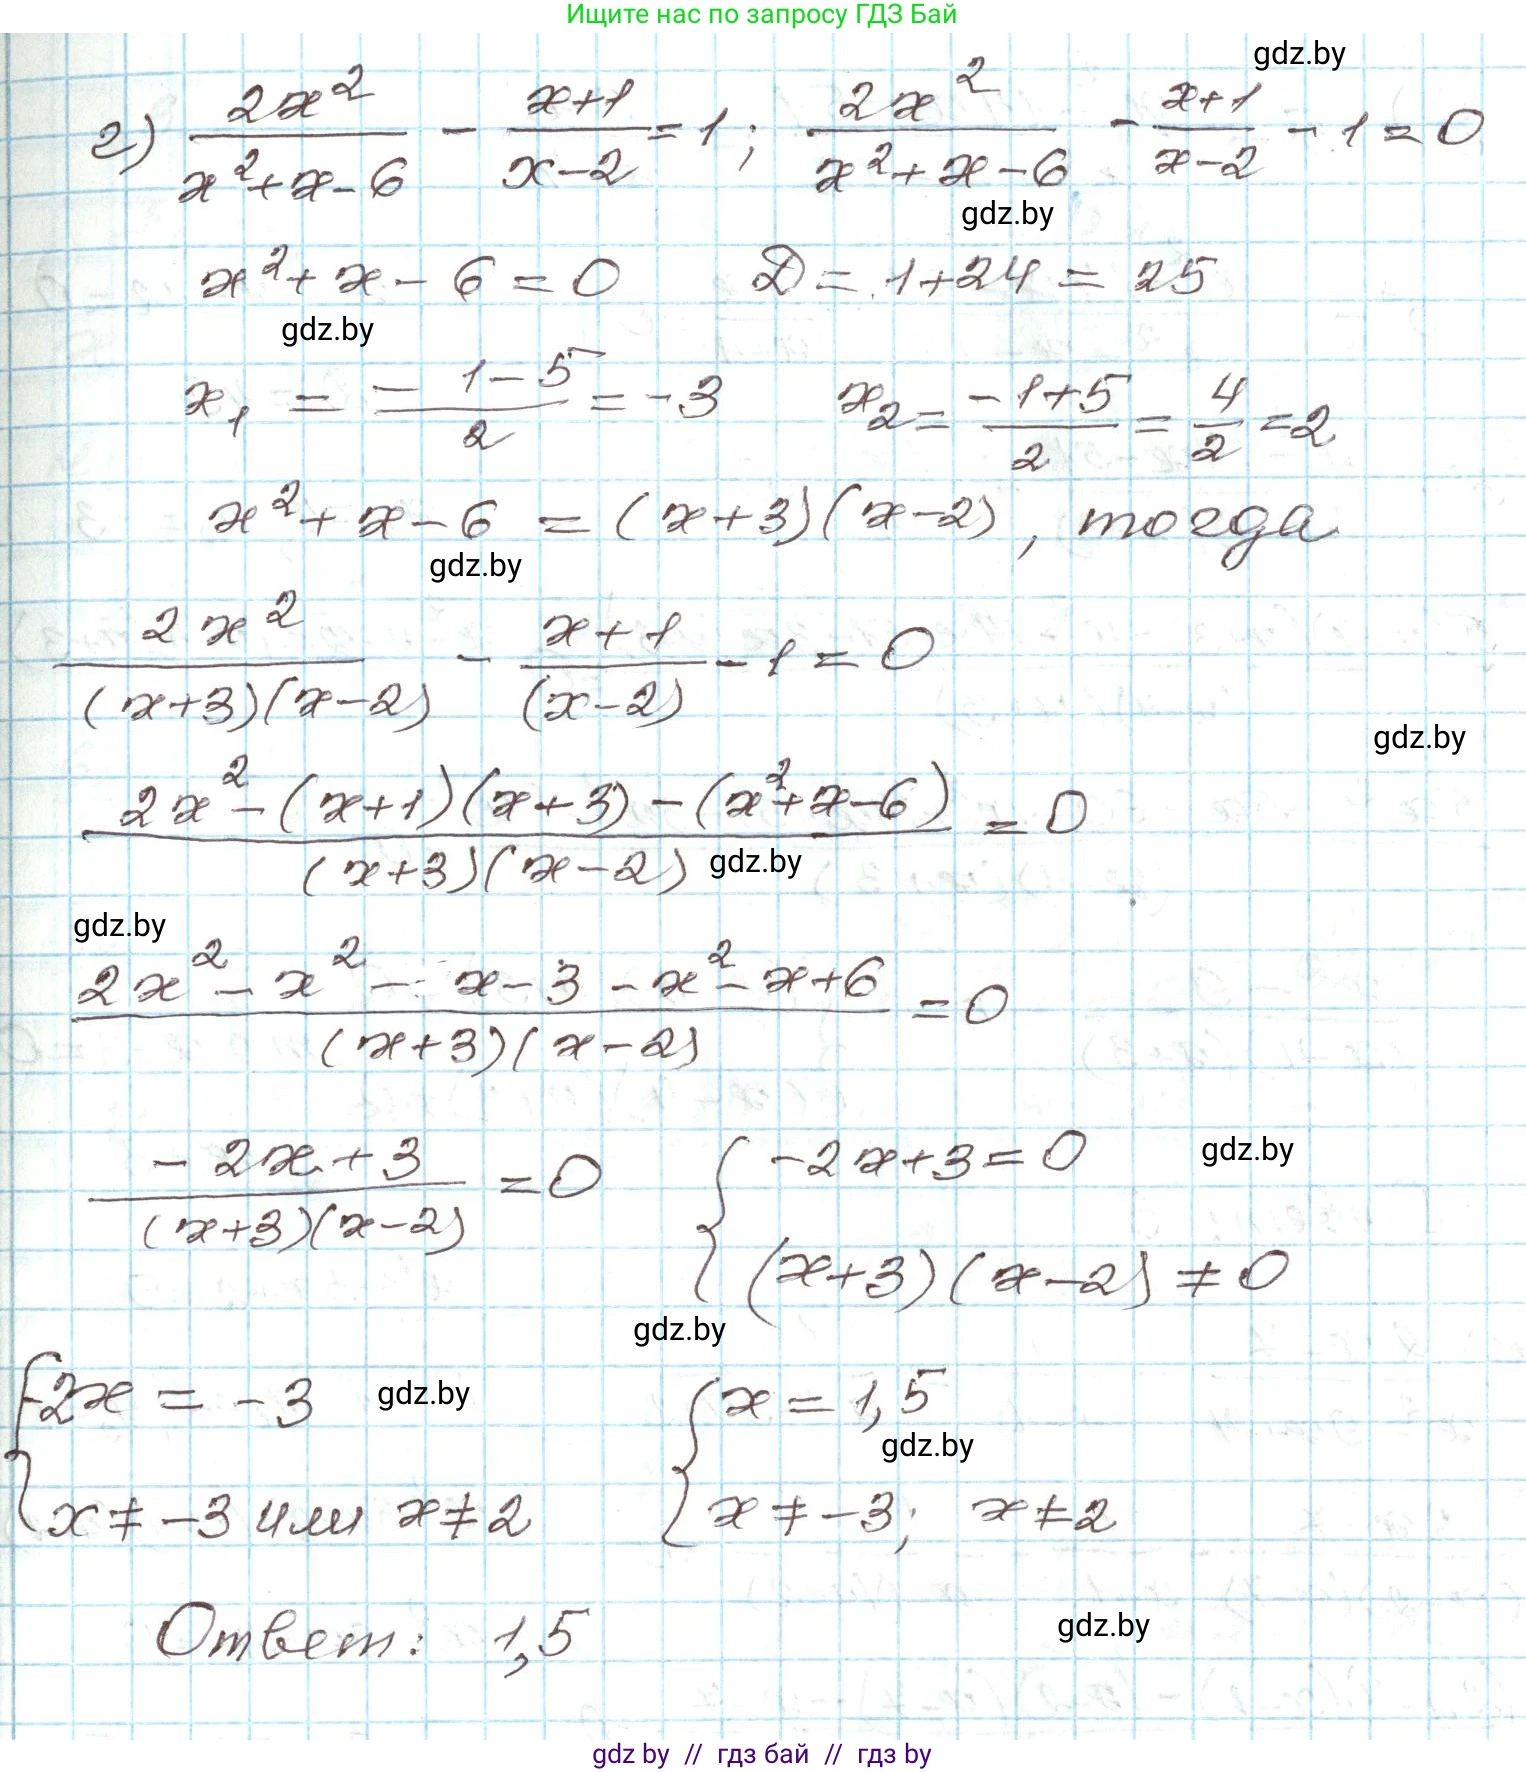 Ищите нас по запросу ГДЗ Бай
gdz.by
г) 2x²/(x²+x-6) - (x+1)/(x-2) = 1; 2x²/(x²+x-6) - (x+1)/(x-2) - 1 = 0
gdz.by
x²+x-6=0 D=1+24=25
gdz.by
x₁ = (-1-5)/2 = -3 x₂ = (-1+5)/2 = 4/2 = 2
x²+x-6 = (x+3)(x-2), тогда
gdz.by
2x²/((x+3)(x-2)) - (x+1)/(x-2) - 1 = 0
gdz.by
(2x²-(x+1)(x+3)-(x²+x-6))/((x+3)(x-2)) = 0
gdz.by
gdz.by
(2x²-x²-x-3-x²-x+6)/((x+3)(x-2)) = 0
(-2x+3)/((x+3)(x-2)) = 0 { -2x+3=0
gdz.by
(x+3)(x-2)≠0
gdz.by
{ -2x = -3 gdz.by { x = 1,5
gdz.by
x≠-3 или x≠2 x≠-3; x≠2
Ответ: 1,5
gdz.by
gdz by // гдз бай // гдз by